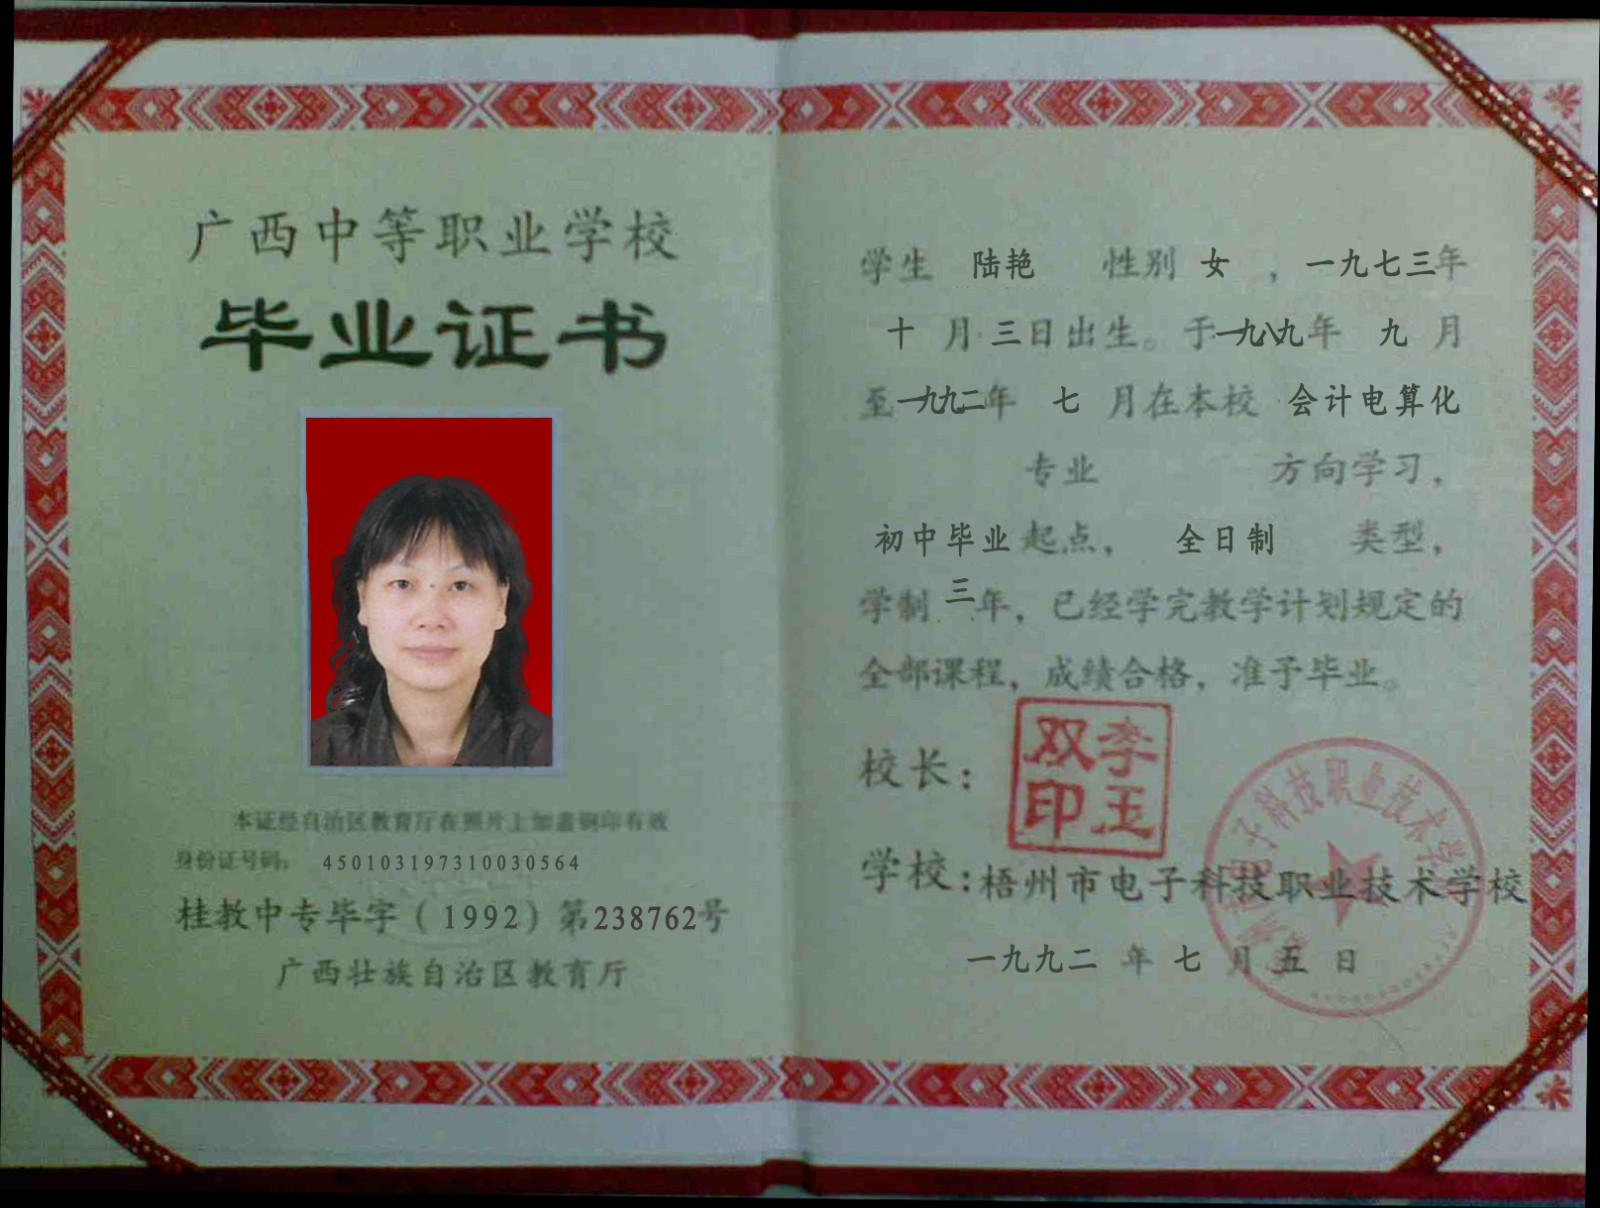 广西中等职业学校
毕业证书
本证经自治区教育厅在照片上加盖钢印有效
身份证号码: 450103197310030564
桂教中专毕字(1992)第238762号
广西壮族自治区教育厅
学生 陆艳 性别 女 , 一九七三年
十 月 三日出生。于一九八九年 九 月
至一九九二年 七 月在本校 会计电算化
专业 方向学习,
初中毕业起点, 全日制 类型,
学制 三年, 已经学完教学计划规定的
全部课程, 成绩合格, 准予毕业。
校长:
李玉双印
学校:梧州市电子科技职业技术学校
电子科技职业技术学
一九九二 年 七 月 五 日